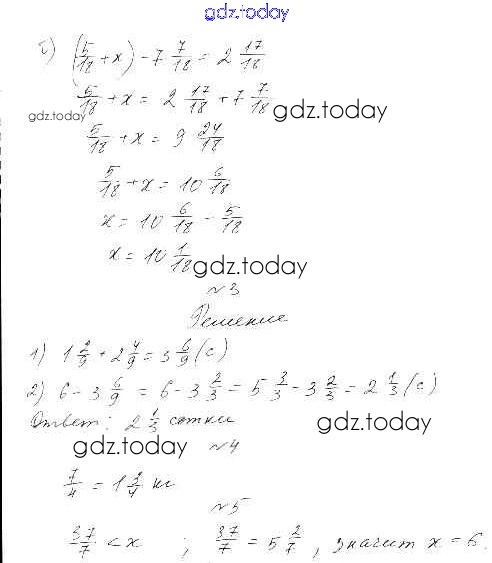 gdz.today
б) (5/18 + x) - 7 7/18 = 2 17/18
5/18 + x = 2 17/18 + 7 7/18
gdz.today
gdz.today
5/18 + x = 9 24/18
5/18 + x = 10 6/18
x = 10 6/18 - 5/18
x = 10 1/18
gdz.today
№3
Решение
1) 1 2/9 + 2 4/9 = 3 6/9 (с)
2) 6 - 3 6/9 = 6 - 3 2/3 = 5 3/3 - 3 2/3 = 2 1/3 (с)
Ответ: 2 1/3 сотки
gdz.today
gdz.today
№4
7/4 = 1 3/4 кг
№5
37/7 < x ; 37/7 = 5 2/7, значит x = 6.